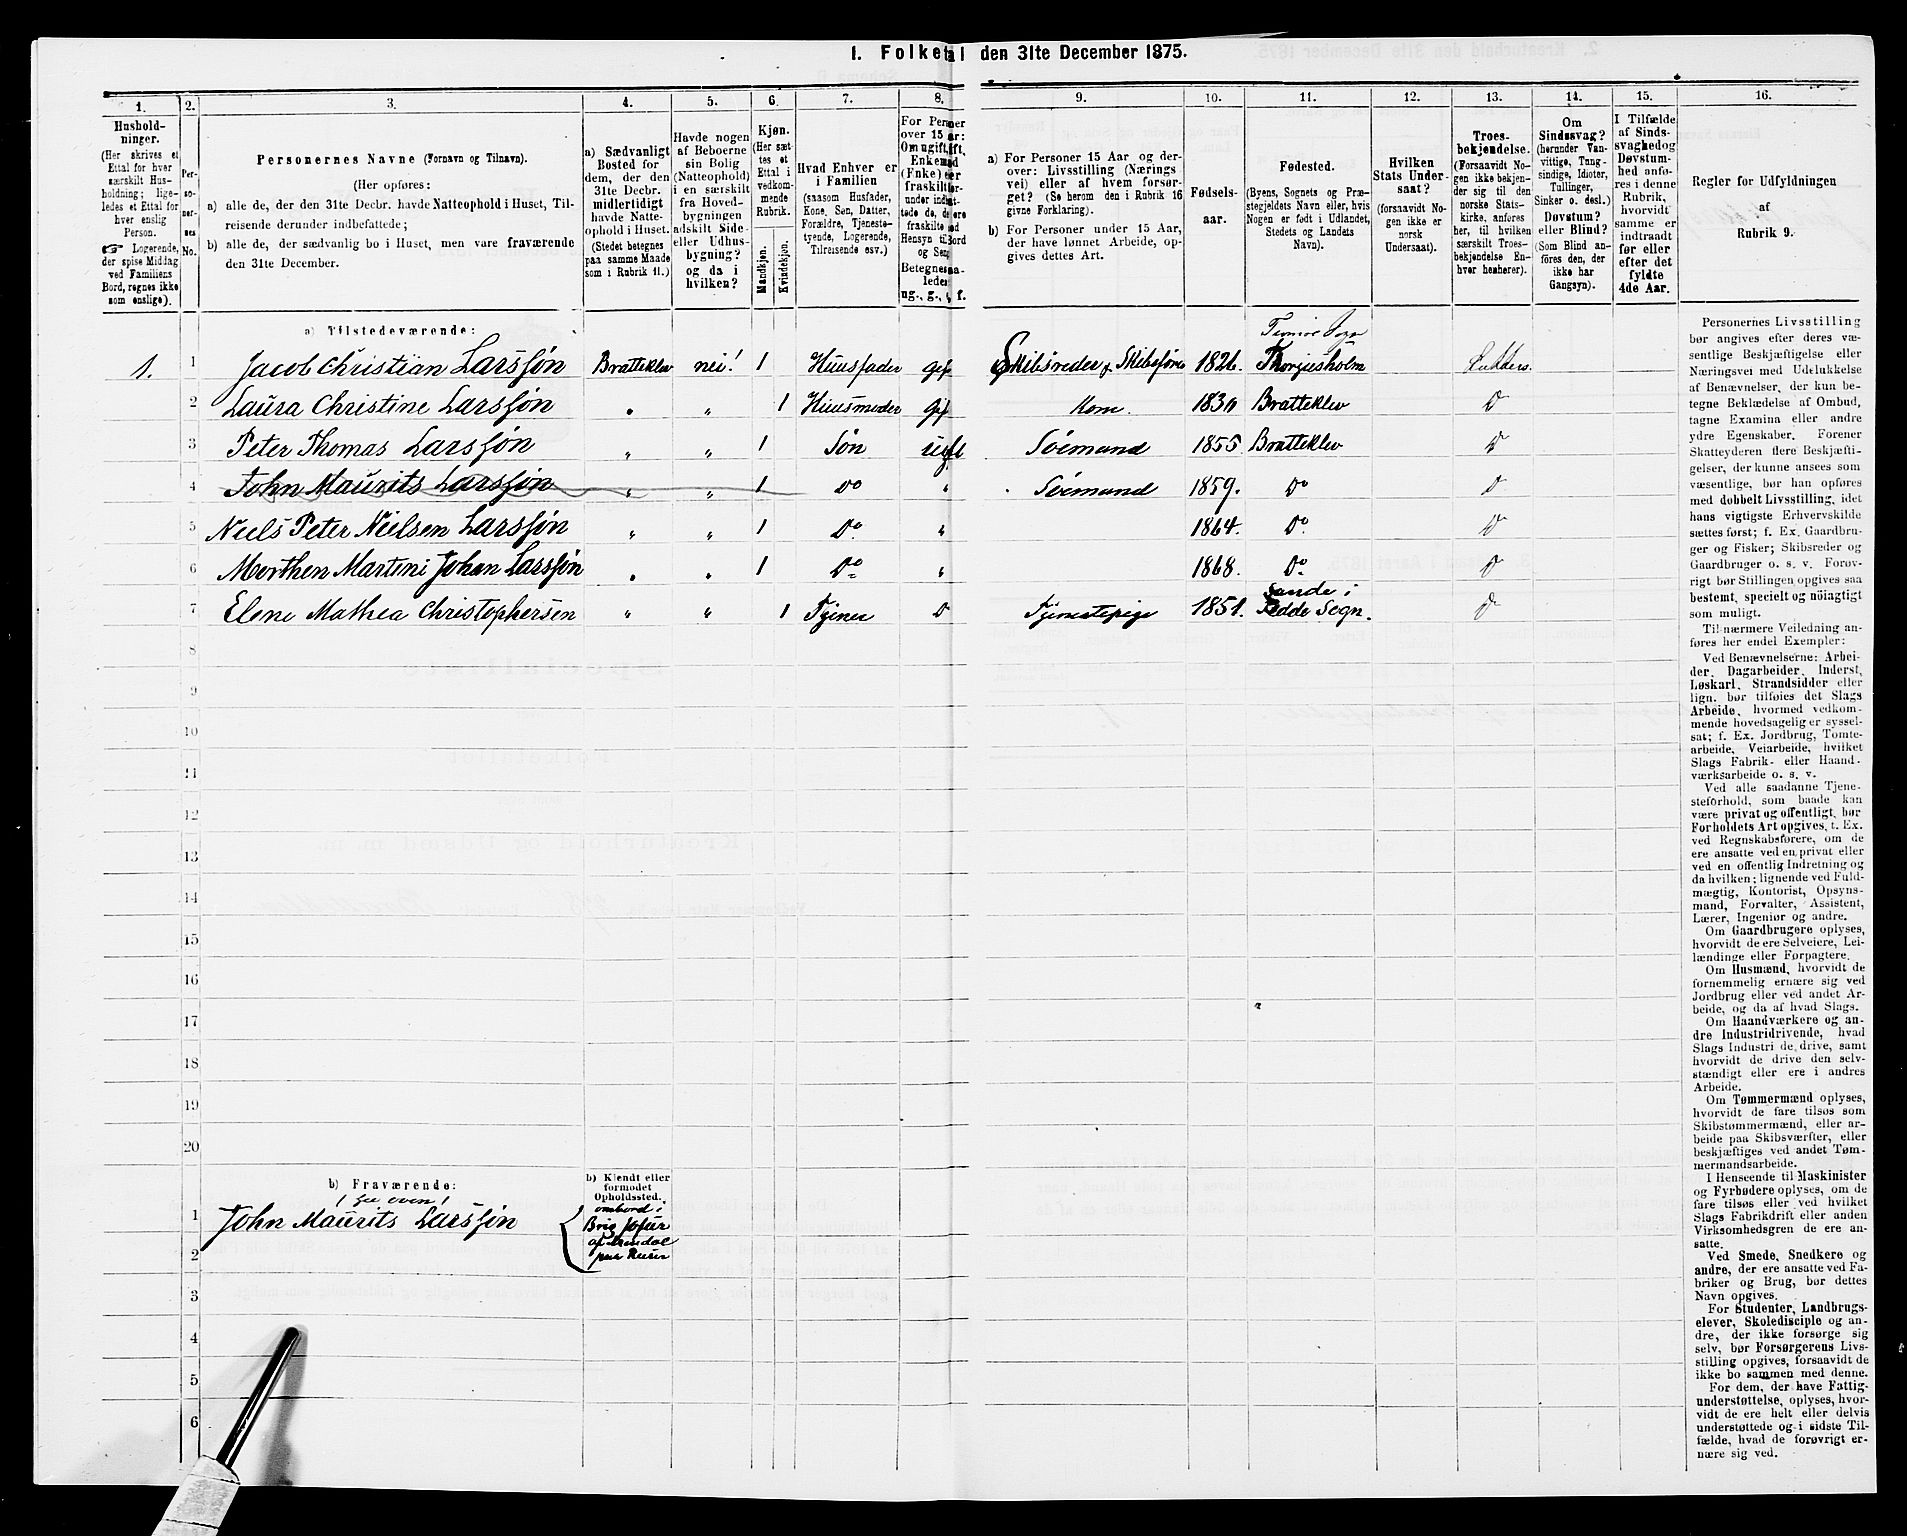 1. Folketal den 31te December 1875.
1. 2. 3. 4. 5. 6. 7. 8. 9. 10. 11. 12. 13. 14. 15. 16.
Hushold-
ninger.
(Her skrives et
Ettal for hver
særskilt Hus-
holdning; lige-
ledes et Ettal for
hver enslig
Person.
☞ Logerende,
der spise Middag
ved Familiens
Bord, regnes ikke
som enslige).
Per-
so-
ner-
nes
No.
Personernes Navne (Fornavn og Tilnavn).
(Her opføres:
a) alle de, der den 31te Decbr. havde Natteophold i Huset, Til-
reisende derunder indbefattede;
b) alle de, der sædvanlig bo i Huset, men vare fraværende
den 31te December.
a) Sædvanligt
Bosted for
dem, der den
31te Decbr.
midlertidigt
havde Natte-
ophold i Huset.
(Stedet betegnes
paa samme Maade
som i Rubrik 11.)
Havde nogen
af Beboerne
sin Bolig
(Natteophold)
i en særskilt
fra Hoved-
bygningen
adskilt Side-
eller Udhus-
bygning?
og da i
hvilken?
Kjøn.
(Her sæt-
tes et
Ettal i
vedkom-
mende
Rubrik.
Mandkjøn.
Kvindekjøn.
Hvad Enhver er
i Familien
(saasom Husfader,
Kone, Søn, Datter,
Forældre, Tjeneste-
tyende, Logerende,
Tilreisende osv.)
For Personer
over 15 Aar:
Om ugift, gift,
Enkemand
(Enke) eller
fraskilt
Betegnes saa-
ledes:
ug., g., e., f.
a) For Personer 15 Aar og der-
over: Livsstilling (Nærings-
vei) eller af hvem forsør-
get? (Se herom den i Rubrik 16
givne Forklaring).
b) For Personer under 15 Aar,
der have lønnet Arbeide, op-
gives dettes Art.
Fødsels-
aar.
Fødested.
(Byens, Sognets og Præ-
stegjeldets Navn eller, hvis
Nogen er født i Udlandet,
Stedets og Landets
Navn).
Hvilken
Stats Under-
saat?
(forsaavidt No-
gen ikke er
norsk
Undersaat).
Troes-
bekjendelse.
(Forsaavidt No-
gen ikke bekjen-
der sig til den
norske Stats-
kirke, anføres
her, til hvilken
særskilt Troes-
bekjendelse En-
hver henhører).
Om
Sindssvag?
(herunder Van-
vittige, Tung-
sindige, Idioter,
Tullinger,
Sinker o. desl.)
Døvstum?
eller Blind?
(Som Blind an-
føres den, der
ikke har
Gangsyn).
I Tilfælde
af Sinds-
svaghed og
Døvstum-
hed anfø-
res i denne
Rubrik,
hvorvidt
samme er
indtraadt
før eller
efter det
fyldte
4de Aar.
Regler for Udfyldningen
af
Rubrik 9.
a) Tilstedeværende:
1. 1 Jacob Christian Larssøn Bratteklev nei! 1 Huusfader gif Skibsreder & Skibsfører 1826. Tromø Sogn Thorjusholm Luthers.
2 Laura Christine Larssøn " " 1 Huusmoder gif Kone. 1830 Bratteklev D
3 Peter Thomas Larssøn " " 1 Søn ugift Sømand 1855 Bratteklev D
4 John Maurits Larssøn " " 1 Do " Sømand 1859. Do D
5 Niels Peter Nielsen Larssøn " " 1 Do " 1864. Do D
6 Morthen Martini Johan Larssøn " " 1 Do " 1868. Do D
7 Elene Mathea Christophersen " " 1 Tjener D Tjenestepige 1851. Sande i Fedde Sogn. D
8
9
10
11
12
13
14
15
16
17
18
19
20
b) Fraværende:
b) Kjendt eller
formodet
Opholdssted.
(see oven)
1 John Maurits Larssøn
ombord i
Brig
af Arendal
paa Reiser
2
3
4
5
6
Personernes Livsstilling
bør angives efter deres væ-
sentlige Beskjæftigelse eller
Næringsvei med Udelukkelse
af Benævnelser, der kun be-
tegne Beklædelse af Ombud,
tagne Examina eller andre
ydre Egenskaber. Forener
Skatteyderen flere Beskjæfti-
gelser, der kunne ansees som
væsentlige, bør han opføres
med dobbelt Livsstilling, idet
hans vigtigste Erhvervskilde
sættes først; f. Ex. Gaardbru-
ger og Fisker; Skibsreder og
Gaardbruger o. s. v. Forøv-
rigt bør Stillingen opgives saa
bestemt, specielt og nöiagtigt
som muligt.
Til nærmere Veiledning an-
føres her endel Exempler:
Ved Benævnelserne: Arbei-
der, Dagarbeider, Inderst,
Løskarl, Strandsidder eller
lign. bør tilføies det Slags
Arbeide, hvormed vedkom-
mende hovedsagelig er syssel-
sat; f. Ex. Jordbrug, Tomte-
arbeide, Veiarbeide, hvilket
Slags Fabrik- eller Haand-
værksarbeide o. s. v.
Ved alle saadanne Tjene-
steforhold, som baade kan
være privat og offentligt, bør
Forholdets Art opgives, t. Ex.
ved Regnskabsførere, om de
ere ansatte ved en privat eller
ved en offentlig Indretning og
da hvilken; lignende ved Fuld-
mægtig, Kontorist, Opsyns-
mand, Forvalter, Assistent,
Lærer, Ingeniør og andre.
Om Gaardbrugere oplyses,
hvorvidt de ere Selveiere, Lei-
lændinge eller Forpagtere.
Om Husmænd, hvorvidt de
fornemmelig ernære sig ved
Jordbrug eller ved andet Ar-
beide, og da af hvad Slags.
Om Haandværkere og an-
dre Industridrivende, hvad
Slags Industri de drive, samt
hvorvidt de drive den selv-
stændigt eller ere i andres
Arbeide.
Om Tømmermænd oplyses,
hvorvidt de fare tilsøs som
Skibstømmermænd, eller ar-
beide paa Skibsværfter, eller
beskjæftiges ved andet Tøm-
mermandsarbeide.
I Henseende til Maskinister
og Fyrbødere oplyses, om de
fare tilsøs eller ved hvilket
Slags Fabrikdrift eller anden
Virksomhedsgren de ere an-
satte.
Ved Smede, Snedkere og
andre, der ere ansatte ved Fa-
briker og Brug, bør dettes
Navn opgives.
For Studenter, Landbrugs-
elever, Skoledisciple og an-
dre, der ikke forsørge sig
selv, bør Forsørgerens Livs-
stilling opgives, forsaavidt de
ikke bo sammen med denne.
For dem, der have Fattig-
understøttelse, oplyses, hvor-
vidt de ere helt eller delvis
understøttede og i sidste Til-
fælde, hvad de forøvrigt er-
nære sig ved.